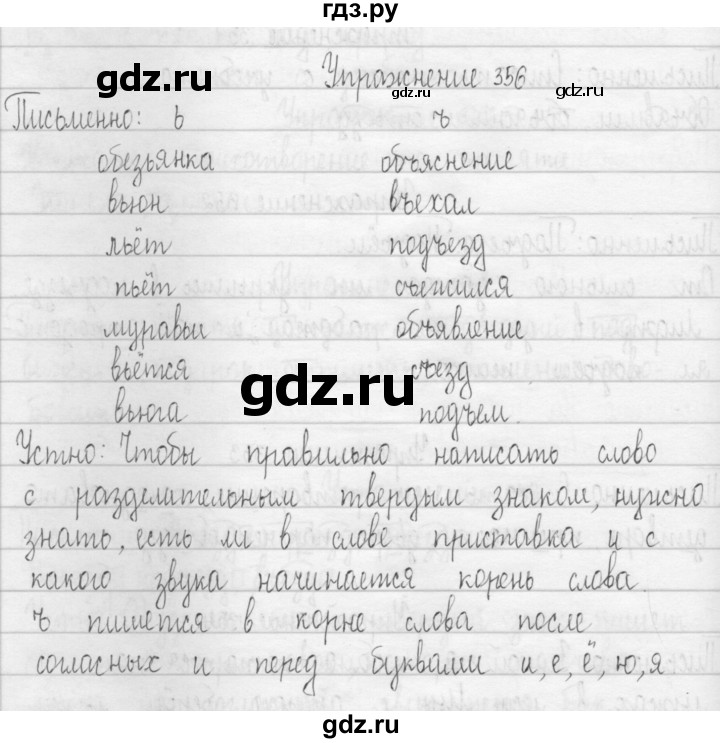 гдз.ру
gdz.ru Упражнение 356
gdz.ru gdz.ru
Письменно: ь ъ
обезьянка объяснение
вьюн въехал
льёт подъезд
пьёт съежился
муравьи объявление
вьётся съезд
gdz.ru
вьюга подъем.
Устно: Чтобы правильно написать слово
с разделительным твердым знаком, нужно
знать, есть ли в слове приставка и с
какого звука начинается корень слова
ь пишется в корне слова после
согласных и перед буквами и, е, ё, ю, я
gdz.ru